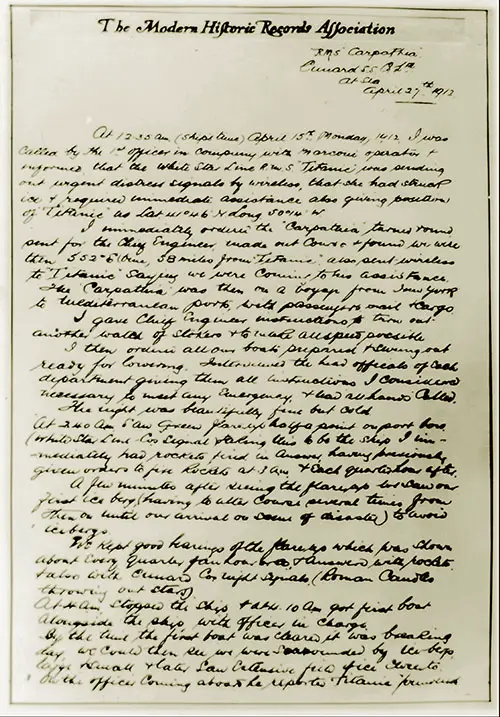 The Modern Historic Records Association
R.M.S. "Carpathia"
Cunard SS Co Ltd
At Sea
April 27th 1912
At 12.35 am (ships time) April 15th Monday, 1912, I was
called by the 1st officer in company with Marconi operator &
informed, that the White Star Line R.M.S "Titanic" was sending
out urgent distress signals by wireless, that she had struck
ice & required immediate assistance also giving position
of "Titanic" as Lat 41°46' N Long 50°14' W
I immediately ordered the "Carpathia" turned round
sent for the Chief Engineer, made out Course & found we were
then S 52° E true, 58 miles from "Titanic" also sent wireless
to "Titanic" saying we were coming to his assistance.
The "Carpathia" was then on a voyage from New York
to Mediterranean ports, with passengers mail & cargo
I gave Chief Engineer instructions to turn out
another watch of stokers & to make all speed possible
I then ordered all our boats prepared & swung out
ready for lowering. Interviewed the head officials of each
department giving them all instructions I considered
necessary to meet any Emergency, & had all hands called.
The night was beautifully fine but cold
At 2.40 am saw Green flare, half a point on port bow
(White Star Line Co Signal) & taking this to be the ship I im-
mediately had rockets fired in answer, having previously
given orders to fire Rockets at 3 am & each quarter hour after.
A few minutes after seeing the flare we saw our
first Ice berg (having to alter Course several times from
then on until our arrival on scene of disaster) to avoid
icebergs.
We kept good bearings of the flare which was shown
about every quarter of an hour & answered with rockets
& also with Cunard Co night signals (Roman Candle
throwing out Stars)
At 4 am Stopped the Ship, & at 4.10 am got first boat
alongside the ship, with officer in charge.
By the time the first boat was cleared it was breaking
day, we could then see we were surrounded by Ice bergs
large & small & later saw Extensive field ice close to.
On the officer coming aboard he reported Titanic foundered